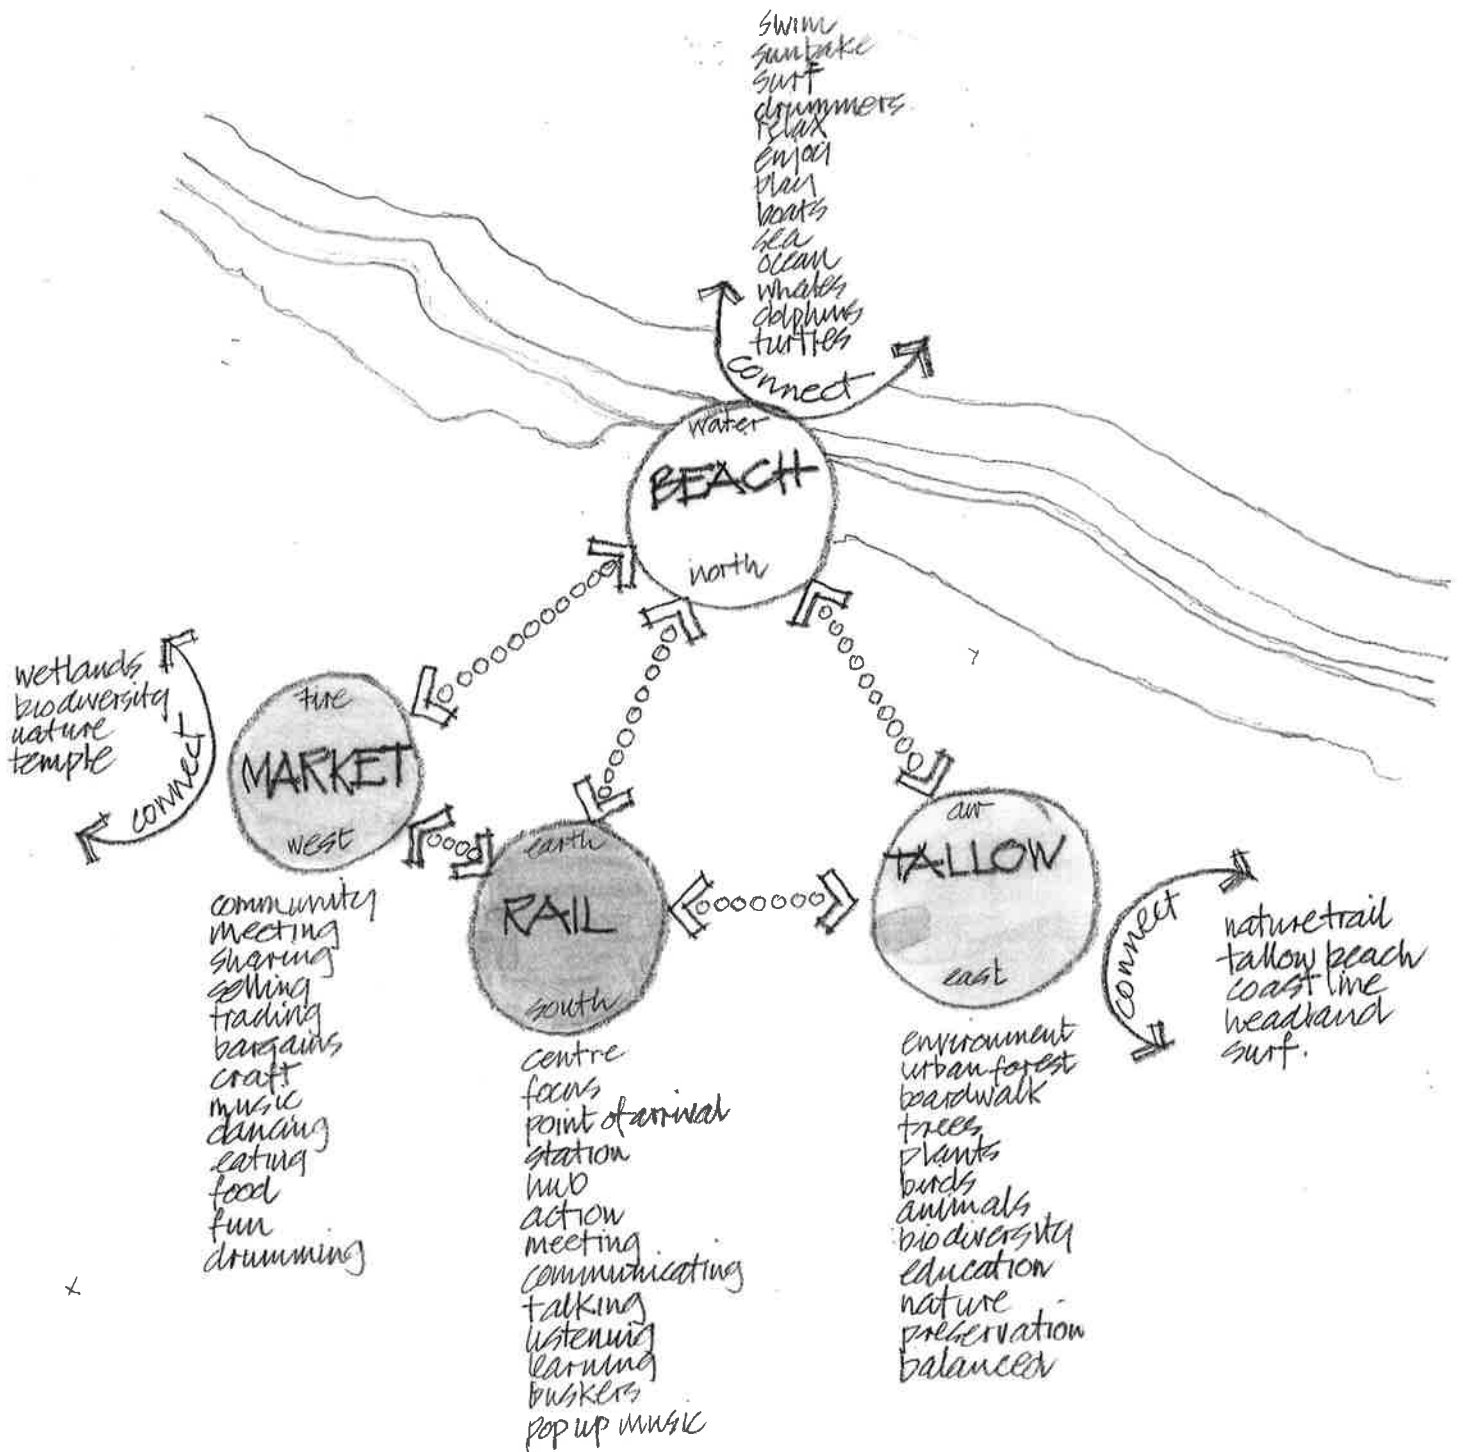 swim
sunbake
surf
drummers
relax
enjoy
play
boats
sea
ocean
whales
dolphins
turtles
connect
water
BEACH
north
wetlands
biodiversity
nature
temple
connect
fire
MARKET
west
community
meeting
sharing
selling
trading
bargains
craft
music
dancing
eating
food
fun
drumming
earth
RAIL
south
centre
focus
point of arrival
station
hub
action
meeting
communicating
talking
listening
learning
buskers
pop up music
air
TALLOW
east
environment
urban forest
boardwalk
trees
plants
birds
animals
biodiversity
education
nature
preservation
balanced
connect
nature trail
tallow beach
coast line
headland
surf.